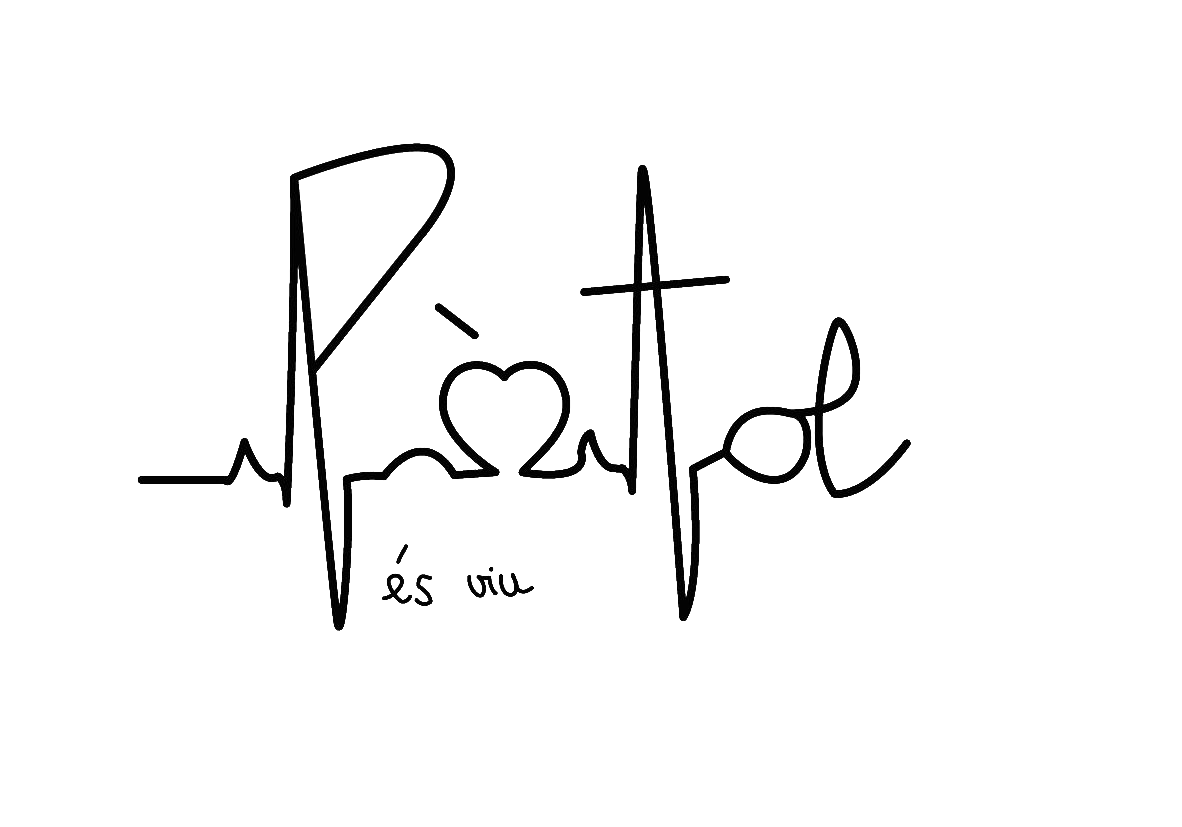 Pòrtol
és viu